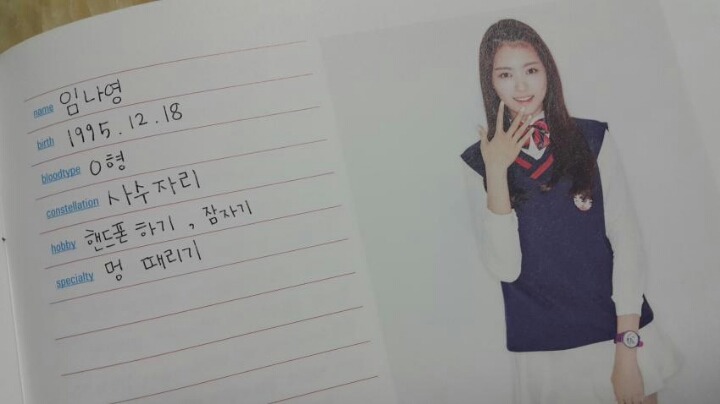 name 임나영
birth 1995.12.18
bloodtype O형
constellation 사수자리
hobby 핸드폰 하기, 잠자기
specialty 멍 때리기